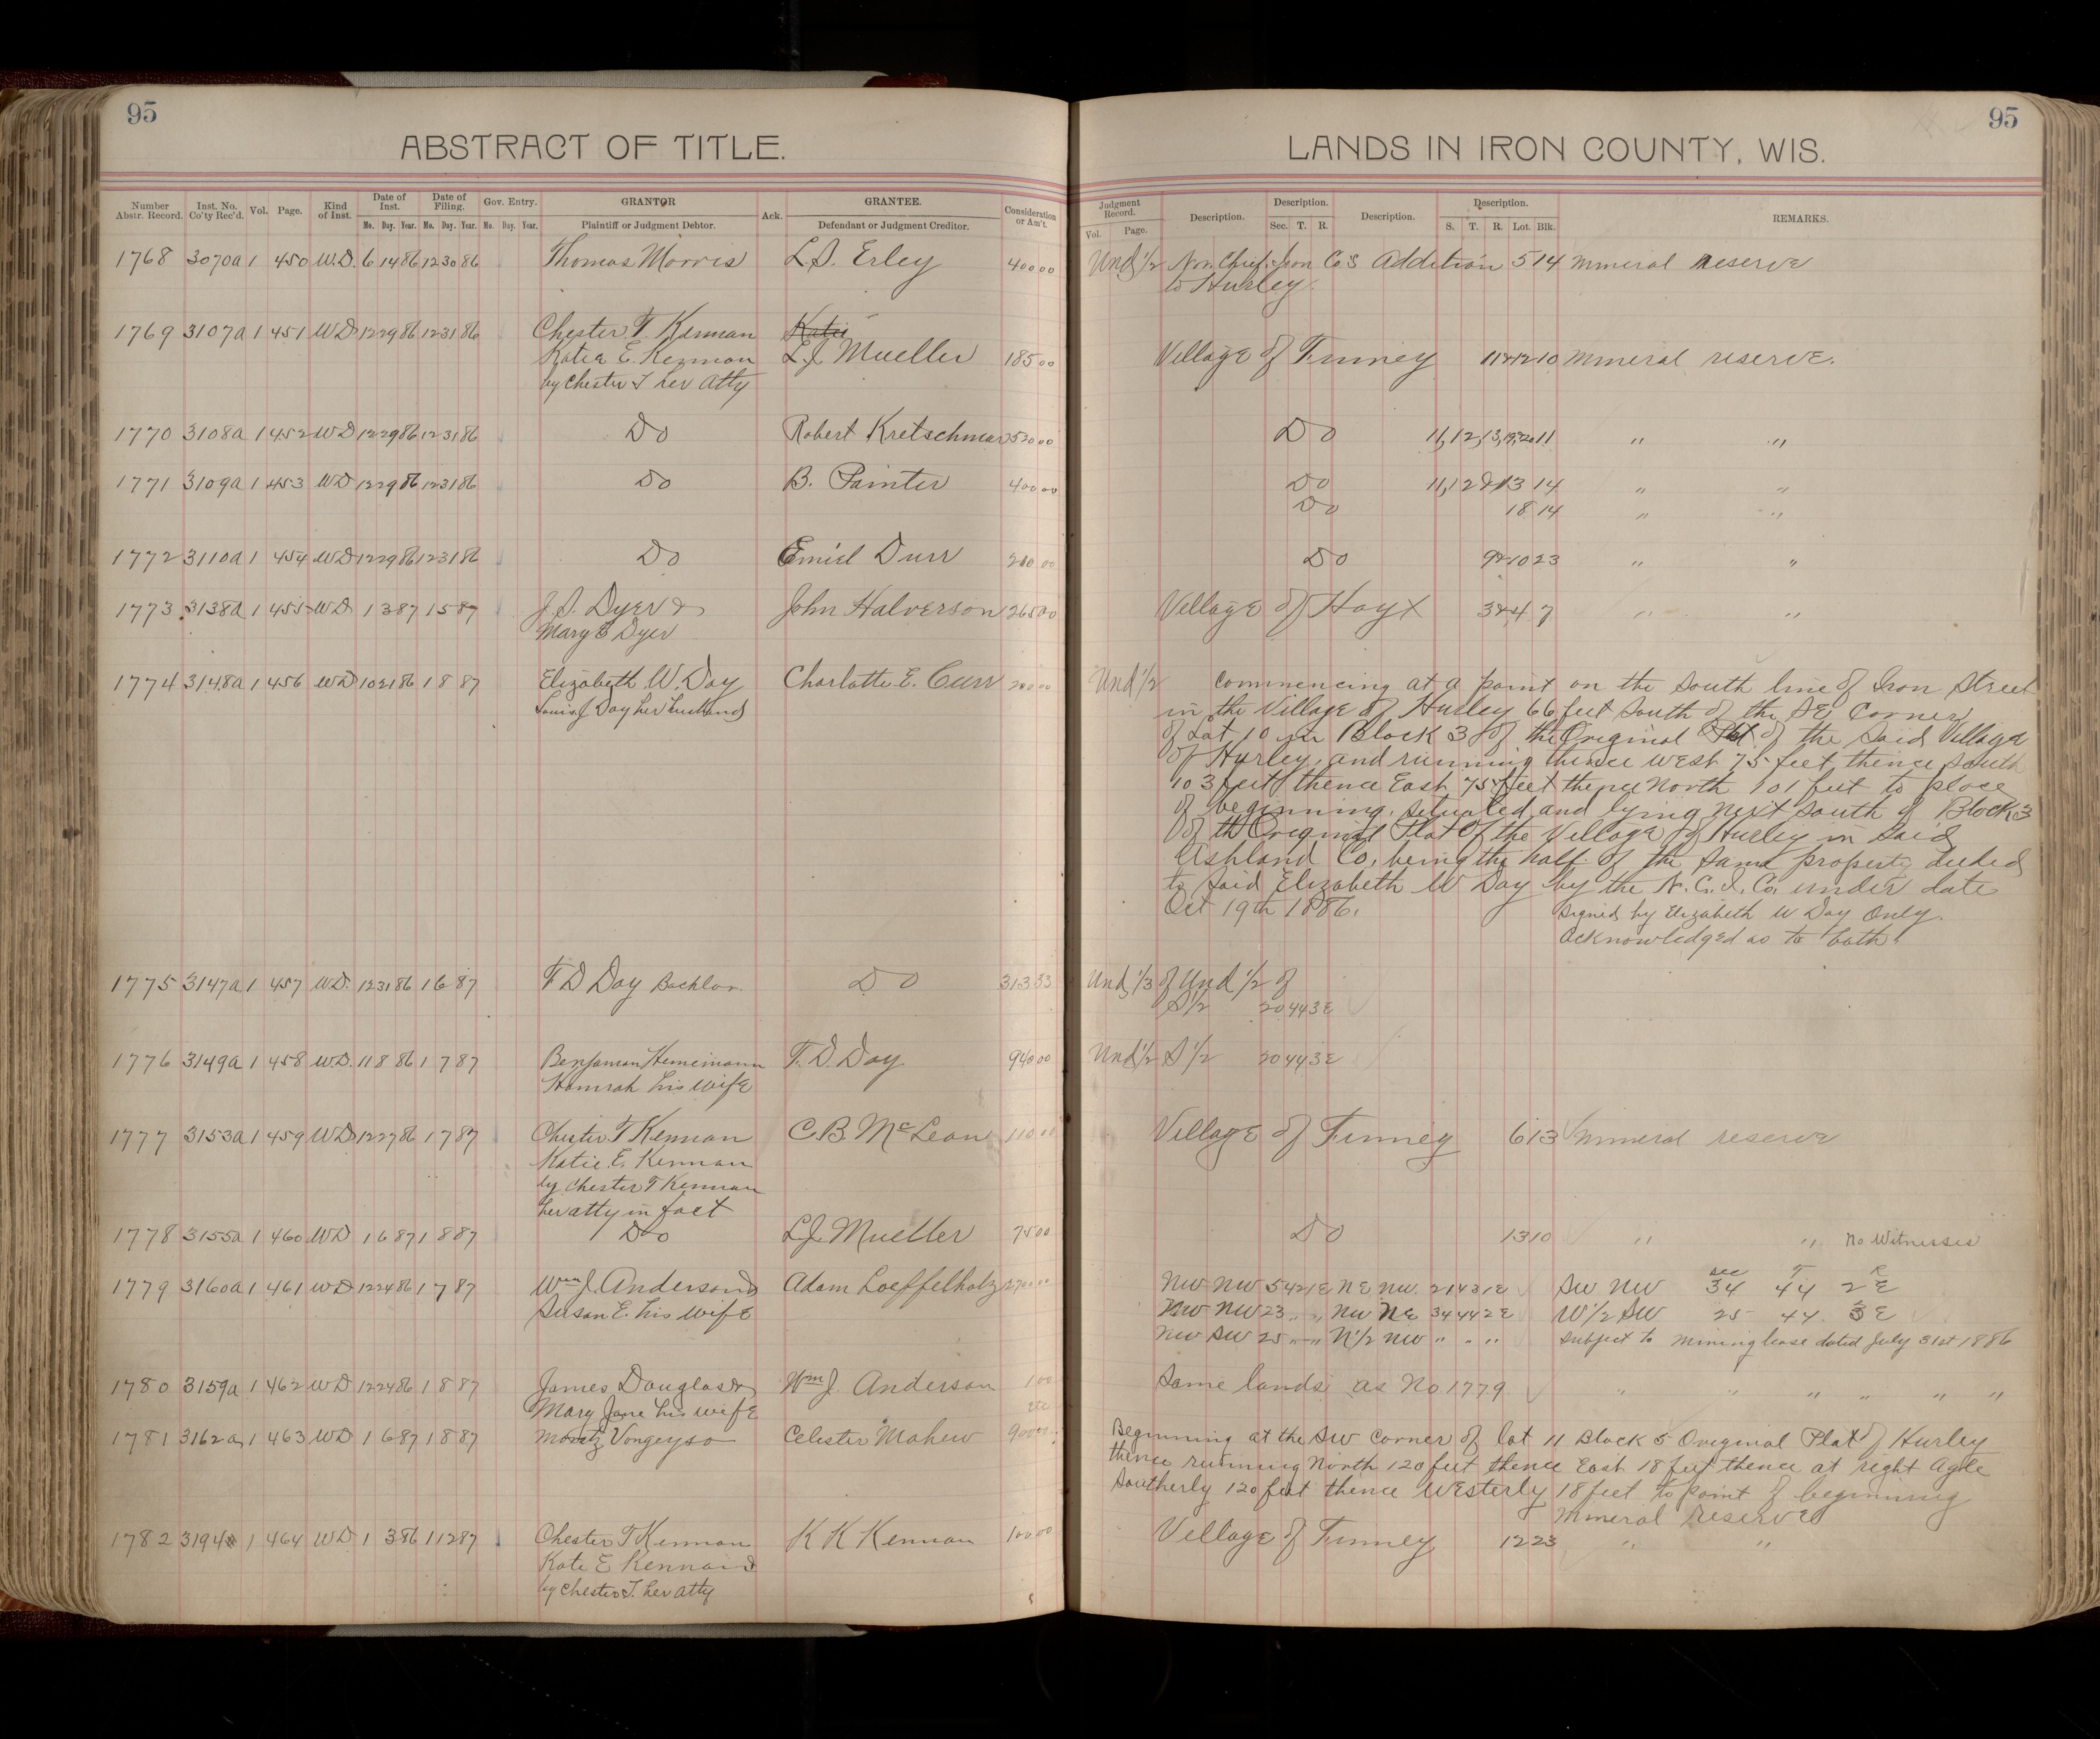 95
95
ABSTRACT OF TITLE.
LANDS IN IRON COUNTY, WIS.
Number Abstr. Record. Inst. No. Co'ty Rec'd. Vol. Page. Kind of Inst. Date of Inst. Mo. Day. Year. Date of Filing. Mo. Day. Year. Gov. Entry. Mo. Day. Year. GRANTOR Plaintiff or Judgment Debtor. Ack. GRANTEE. Defendant or Judgment Creditor. Consideration or Am't.
Judgment Record. Vol. Page. Description. Description. Sec. T. R. Description. Description. S. T. R. Lot. Blk. REMARKS.
1768 3070a 1 450 W.D. 6 14 86 12 30 86 Thomas Morris L.S. Erley 400 00 Und 1/2 Nor. Chief Iron Co's Addition 5 14 Mineral Reserve
to Hurley
1769 3107a 1 451 WD 12 29 86 12 31 86 Chester T. Kennan Katie
Katie E. Kennan L.J. Mueller 185 00 Village of Finney 11 & 12 10 Mineral reserve.
by Chester T her atty
1770 3108a 1 452 WD 12 29 86 12 31 86 Do Robert Kretschmar 520 00 Do 11,12,13,19,20 11 " "
1771 3109a 1 453 WD 12 29 86 12 31 86 Do B. Painter 400 00 Do 11,12 & 13 14 " "
Do 18 14 " "
1772 3110a 1 454 WD 12 29 86 12 31 86 Do Emiel Durr 200 00 Do 9 & 10 23 " "
1773 3138a 1 455 WD 1 3 87 1 5 87 J.S. Dyer & John Halverson 265 00 Village of Hoyt 3 & 4 7 " "
Mary E Dyer
1774 3148a 1 456 WD 10 21 86 1 8 87 Elizabeth W. Day Charlotte E. Curr 200 00 Und 1/2 Commencing at a point on the South line of Iron Street
Louis J Day her husband in the Village of Hurley 66 feet South of the SE Corner
of Lot 10 in Block 3 of the Original Plat of the Said Village
of Hurley, and running thence west 75 feet, thence south
103 feet thence East 75 feet thence North 101 feet to place
of beginning, situated and lying next south of Block 3
of th Original Plat of the Village of Hurley in Said
Ashland Co, being the half of the same property deeded
to said Elizabeth W Day by the N.C.I. Co. under date
Oct 19th 1886. Signed by Elizabeth W Day Only.
Acknowledged as to both.
1775 3147a 1 457 WD. 12 31 86 1 6 87 F D Day Bachlor Do 313 33 Und 1/3 of Und 1/2 of
S 1/2 20 44 3E
1776 3149a 1 458 W.D. 11 8 86 1 7 87 Benjaman Heineimann F. D. Day 940 00 Und 1/2 S 1/2 20 44 3E
Hannah his wife
1777 3153a 1 459 WD 12 27 86 1 7 87 Chester T Kennan C.B. McLean 110 00 Village of Finney 6 13 Mineral reserve
Katie E. Kennan
by Chester T Kennan
her atty in fact
1778 3155a 1 460 WD 1 6 87 1 8 87 Do L.J. Mueller 75 00 Do 13 10 " " No Witnesses
1779 3160a 1 461 WD 12 24 86 1 7 87 Wm J. Anderson & Adam Loeffelholz NW NW 5 42 1E NE NW 21 43 1E SW NW Sec 34 T 44 R 2E
Susan E. his wife NW NW 23 " " NW NE 34 44 2E W 1/2 SW 25 44 3E
NW SW 25 " " N 1/2 NW " " " Subject to Mining lease dated July 31st 1886
1780 3159a 1 462 WD 12 24 86 1 8 87 James Douglas & Wm J. Anderson 1 00 Same lands as No 1779 " " " " " "
Mary Jane his wife etc
1781 3162a 1 463 WD 1 6 87 1 8 87 Moritz Vongeyso Celester Mahew 900 00 Beginning at the SW Corner of lot 11 Block 5 Original Plat of Hurley
thence running North 120 feet thence East 18 feet thence at right Agle
Southerly 120 feet thence Westerly 18 feet to point of beginning
Mineral Reserve
1782 3194a 1 464 WD 1 3 86 1 12 87 Chester T Kennan K K Kennan 100 00 Village of Finney 12 23 " "
Kate E Kennan
by Chester T. her atty